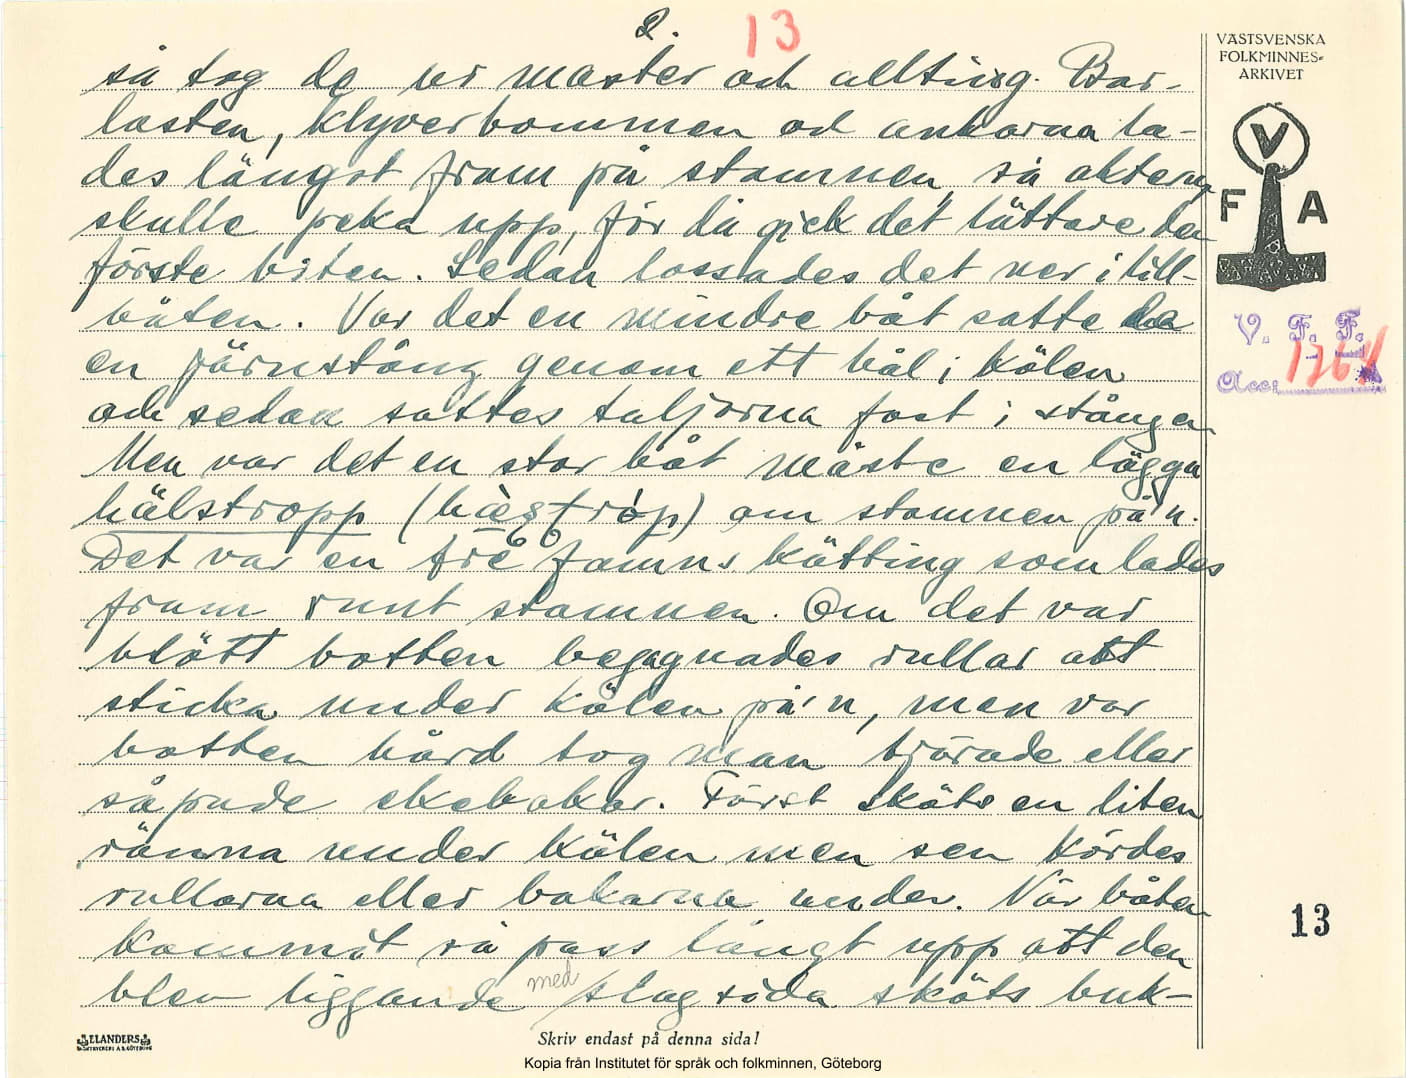 2.
13
VÄSTSVENSKA
FOLKMINNES-
ARKIVET
V
F A
V. F. F.
Acc: 1264
så tog de ur master och allting. Bar-
lasten, klyverbommen och ankarna la-
des längst fram på stammen, så aktern
skulle peka upp, för då gick det lättare den
förste biten. Sedan lossades det ner i till-
båten. Var det en mindre båt satte de
en järnstång genom ett hål i kölen
och sedan sattes taljorna fast i stången
Men var det en stor båt måste en lägga
hälstropp om stammen på'n.
Det var en tre famns kätting som lades
fram runt stammen. Om det var
blött botten begagnades rullar att
sticka under kölen på'n, men var
botten hård tog man tjärade eller
såpade ekebakar. Först sköts en liten
ränna under kölen men sen kördes
rullarna eller bakarna under. När båten
kommit så pass långt upp att den
blev liggande med slagsida sköts buk-
13
ELANDERS
Skriv endast på denna sida!
Kopia från Institutet för språk och folkminnen, Göteborg